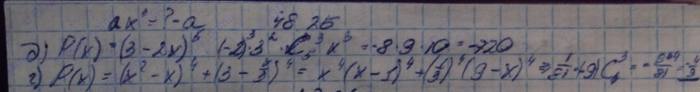 ax³ = ? - a 48 25
д) P(x) = (3 - 2x)⁵ (-2)³3² · C₅³ x³ = -8 · 9 · 10 = -720
г) P(x) = (x² - x)⁴ + (3 - x/3)⁴ = x⁴(x - 1)⁴ + (1/3)⁴(9 - x)⁴ ⇒ 1/81 · (-9) C₄³ =